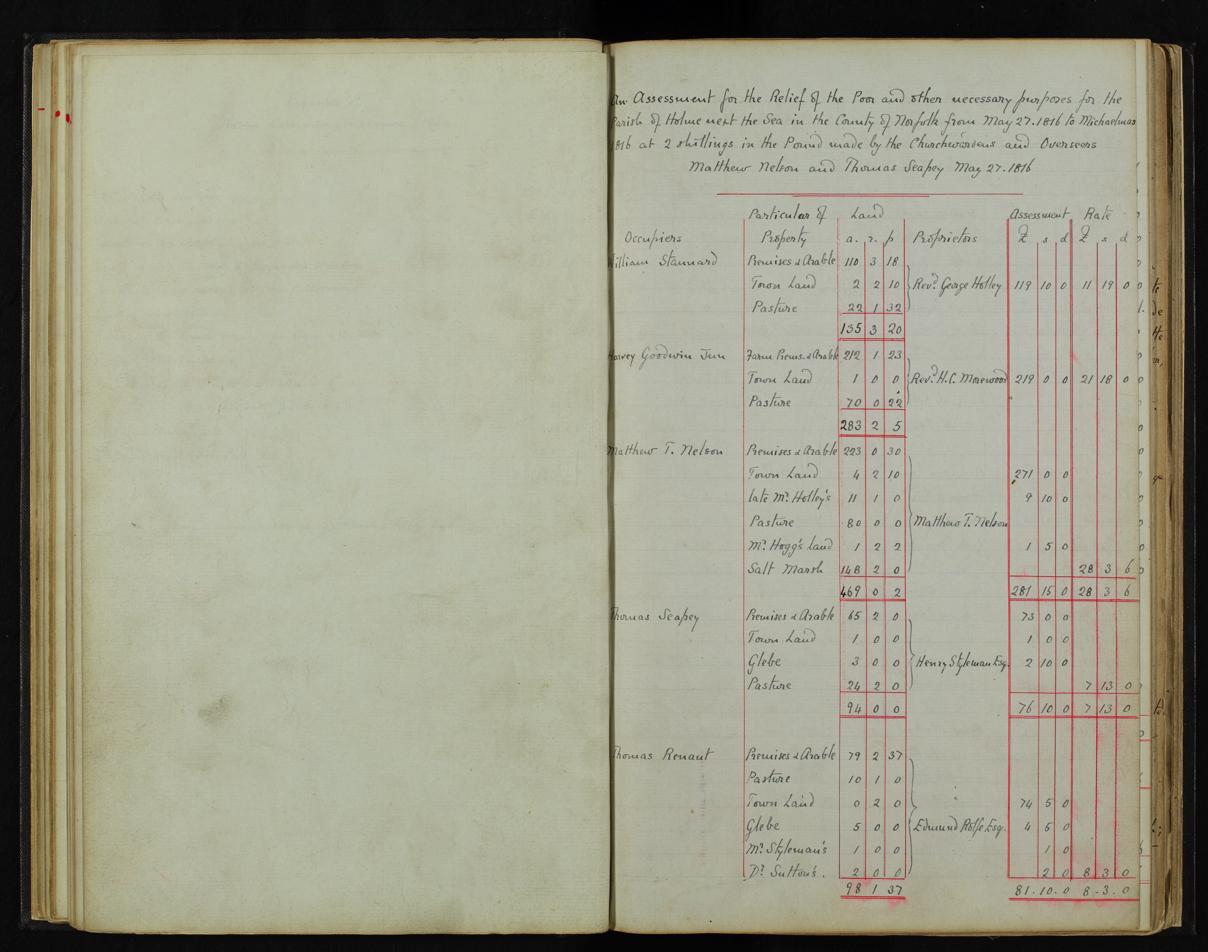 An Assessment for the Relief of the Poor and other necessary purposes for the
Parish of Holme next the Sea in the County of Norfolk from May 27.1816 to Michaelmas
1816 at 2 shillings in the Pound made by the Churchwardens and Overseers
Matthew Nelson and Thomas Seapey May 27.1816
Particular of Land Assessment Rate
Occupiers Property a. r. p Proprietors £ s d £ s d
William Stannard Premises & Arable 110 3 18
Town Land 2 2 10 Revd. George Holley 119 10 0 11 19 0
Pasture 22 1 32
135 3 20
Harvey Goodwin Jun Farm Prems. & Arable 212 1 23
Town Land 1 0 0 Revd. H.C. Morewood 219 0 0 21 18 0
Pasture 70 0 22
283 2 5
Matthew T. Nelson Premises & Arable 223 0 30
Town Land 4 2 10 271 0 0
late Mr. Holley's 11 1 0 9 10 0
Pasture 80 0 0 Matthew T. Nelson
Mr. Hogg's land 1 2 2 1 5 0
Salt Marsh 148 2 0 28 3 6
469 0 2 281 15 0 28 3 6
Thomas Seapey Premises & Arable 65 2 0 73 0 0
Town Land 1 0 0 1 0 0
Glebe 3 0 0 Henry Styleman Esq. 2 10 0
Pasture 24 2 0 7 13 0
94 0 0 76 10 0 7 13 0
Thomas Renaut Premises & Arable 79 2 37
Pasture 10 1 0
Town Land 0 2 0 74 5 0
Glebe 5 0 0 Edmund Rolfe Esq. 4 5 0
Mr. Styleman's 1 0 0 1 0
Dr. Sutton's. 2 0 0 2 0 8 3 0
98 1 37 81.10.0 8.3.0